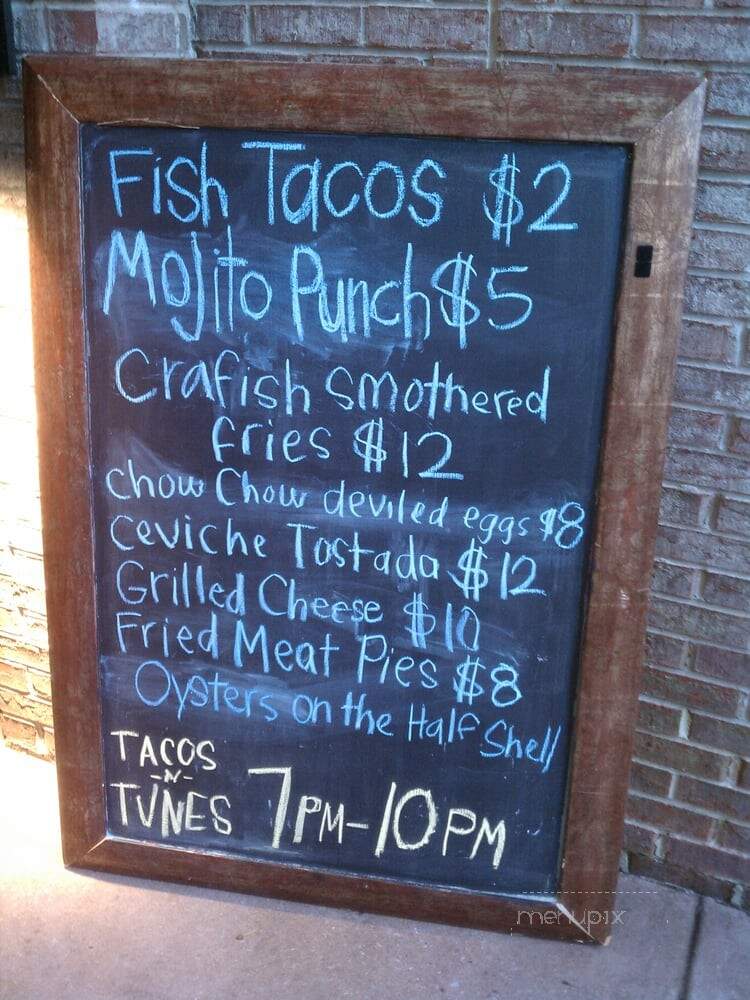 Fish Tacos $2
Mojito Punch $5
Crafish smothered
fries $12
chow Chow deviled eggs $8
Ceviche Tostada $12
Grilled Cheese $10
Fried Meat Pies $8
Oysters on the Half Shell
TACOS
-N-
TUNES 7PM-10PM
menupix